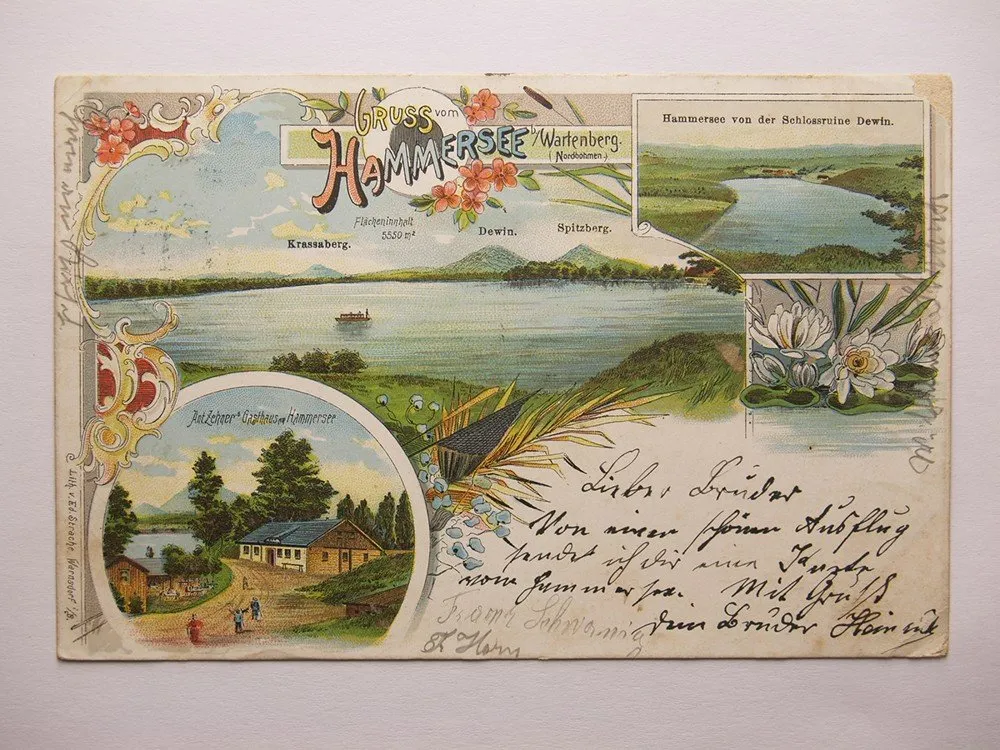 GRUSS vom
HAMMERSEE b/Wartenberg.
(Nordböhmen.)
Hammersee von der Schlossruine Dewin.
Flächeninnhalt
5550 m²
Krassaberg.
Dewin.
Spitzberg.
Ant. Zehner's Gasthaus am Hammersee
Lith. v. Ed. Strache, Warnsdorf i/B.
Lieber Bruder
Von einen schönen Ausflug
sendet ich dir eine Karte
vom Hammersee. Mit Gruß
dein Bruder
Franz